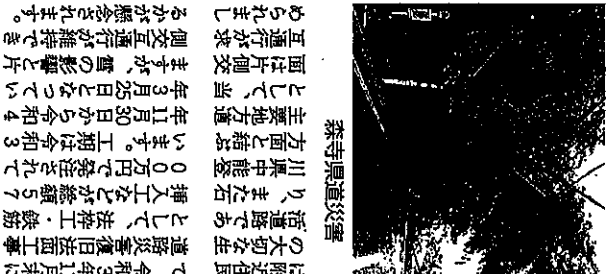 森寺県道災害
に附近住民
の大切な生
活道路であ
り、また石
川県中能登
方面と結ぶ
主要地方道
として、当
面は片側交
互通行が決
められまし
て、令和3年11月に
道路災害復旧法面工事
として、法枠工・鉄筋
挿入工などが総額57
00万円で発注されて
います。工期は令和3
年11月30日から令和4
年3月25日となってい
ますが、雪の影響と片
側交互通行が維持でき
るかが懸念されます。